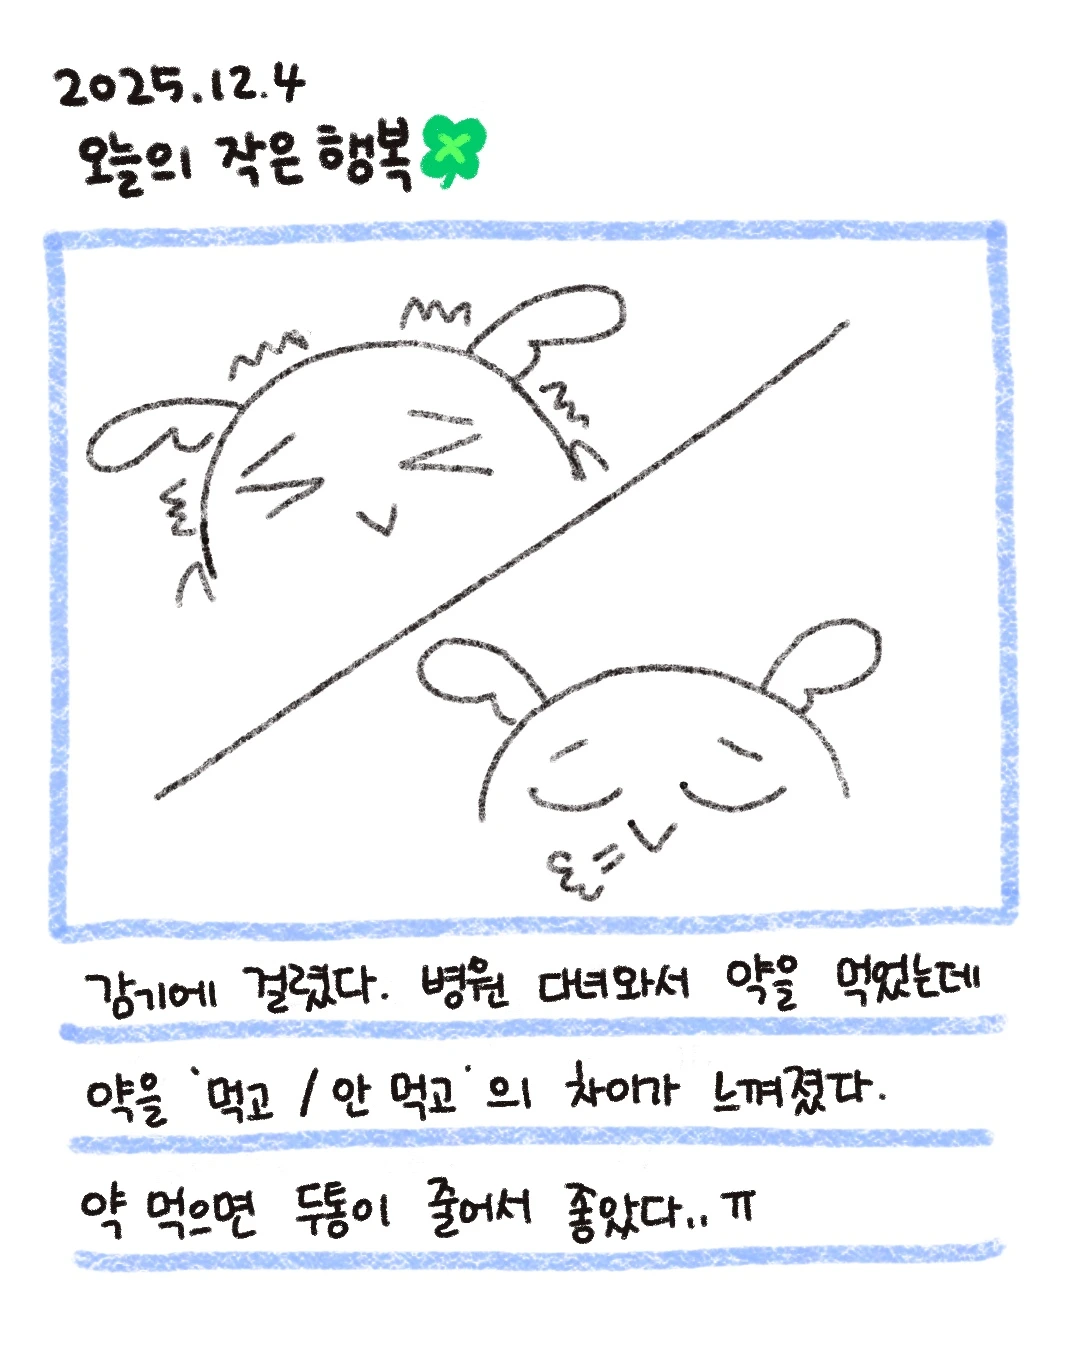 2025.12.4
오늘의 작은 행복
감기에 걸렸다. 병원 다녀와서 약을 먹었는데
약을 '먹고 / 안 먹고'의 차이가 느껴졌다.
약 먹으면 두통이 줄어서 좋았다..ㅠ